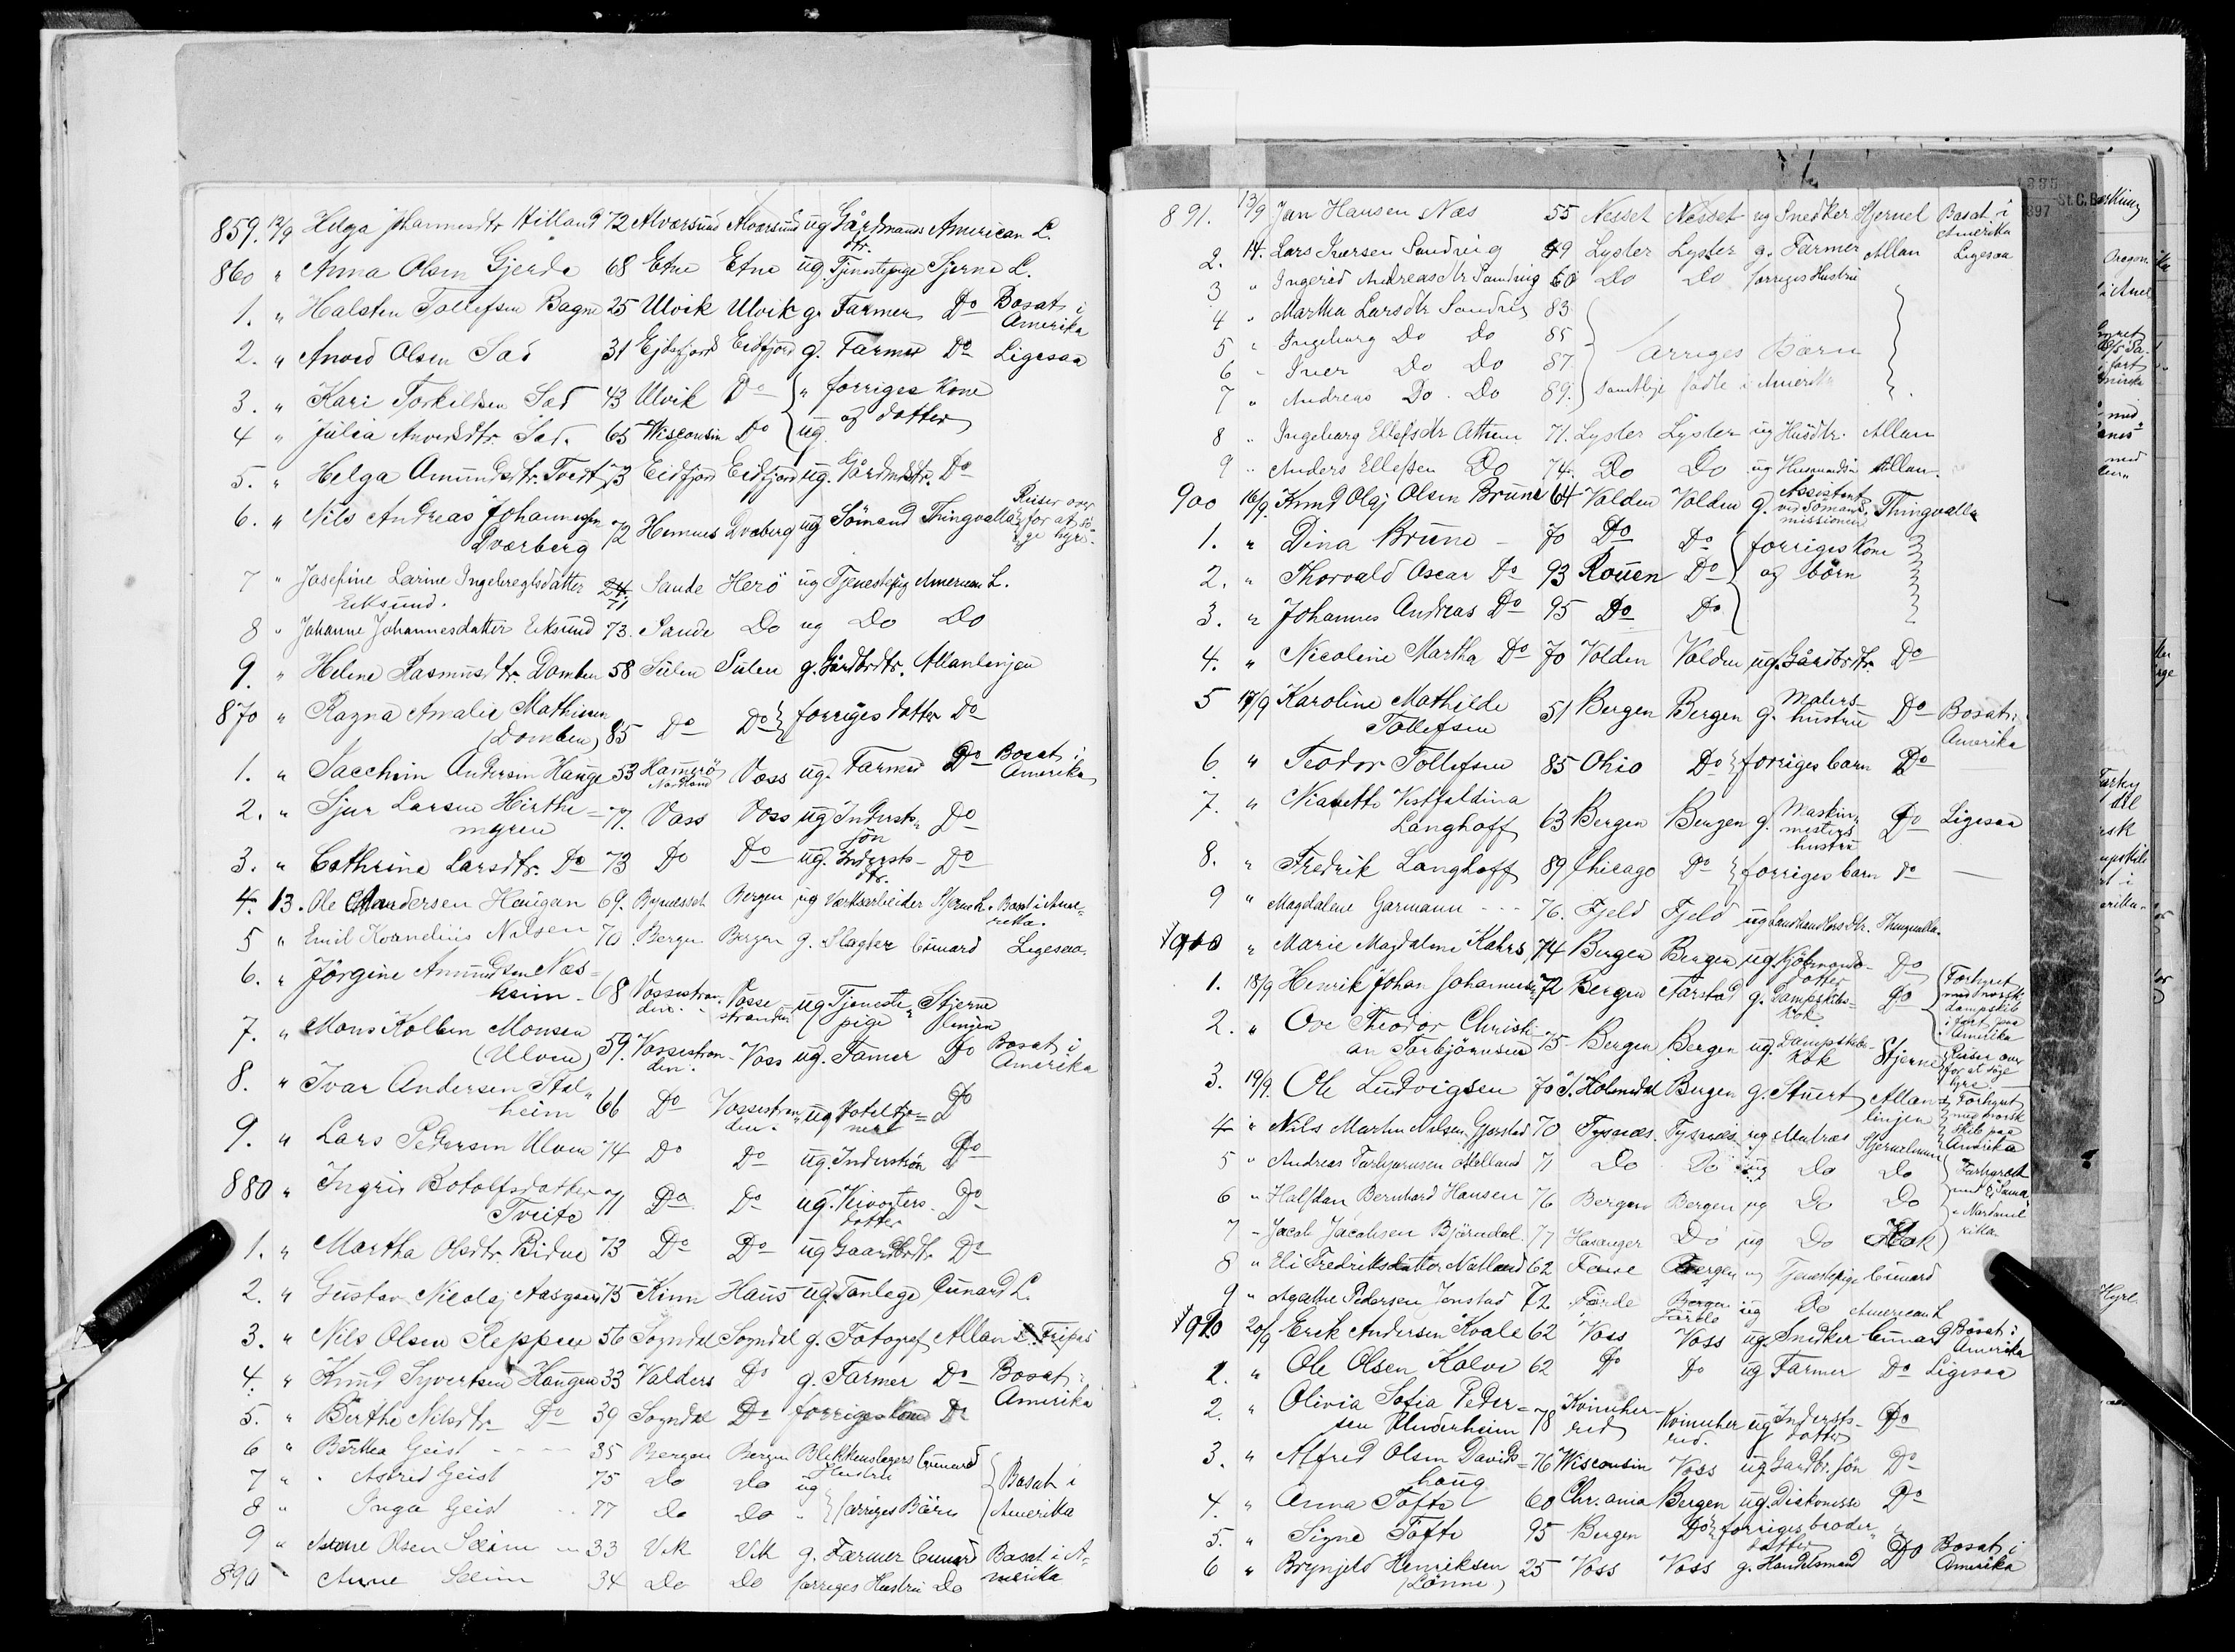 859. 12/9 Helga Johannesdtr Hilland 72 Alversund Alversund ug Gårdmands American L.
dtr.
860 " Anna Olsen Gjerde 68 Etne Etne ug. Tjenestepige Stjerne L.
1. " Halsten Tollefsen Bagne 25 Ulvik Ulvik g. Farmer Do Bosat i
Amerika
2. " Anved Olsen Sæd 31 Ejdsfjord Eidfjord g. Farmer Do Ligesaa
3. " Kari Torkildsen Sæd 43 Ulvik Do " forriges Kone
4 " Julia Anvedsdtr. Sæd. 65 Wisconsin Do ug. og datter
5. " Helga Amundsdtr. Tvedt 73 Eidfjord Eidfjord ug. Gårdmdsdtr. Do
6. " Nils Andreas Johannessen
Dværberg 72 Hemnes Dvæberg ug Sömand Thingvalla Reiser over
for at sö-
ge hyre.
7 " Josefine Larine Ingebregtsdatter
Eiksund. 71 Sande Herö ug Tjenestepig American L.
8 " Johanne Johannesdatter Eiksund 73. Sande Do ug Do Do
9. " Helene Rasmusdtr. Domben 58 Sulen Sulen g. Gårdbrdtr. Allanlinjen
870 " Ragna Amalie Mathisen
(Domben) 85 Do Do forriges datter Do
1. " Sacchim Andersen Hauge 53 Hamerö
Nordland Voss ug. Farmer Do Bosat i
Amerika
2. " Sjur Larsen Hirthe=
myren 77. Voss Voss ug Inderstssön Do
3. " Cathrine Larsdtr. Do 73 Do Do ug. Inderstsdtr. Do
4. 13. Ole Andersen Haugan 69. Bynesset Bergen ug Værksarbeider Stjerne L. Bosat i Ame-
rika.
5 " Emil Kornelius Nilsen 70 Bergen Bergen g. Slagter Cunard Ligesaa.
6. " Jörgine Amundsen Næs=
heim 68 Vossestran-
den. Vosse-
stranden ug Tjeneste-
pige Stjerne
linjen
7. " Mons Kolben Monsen
(Ulven) 59. Vossestran-
den. Voss ug. Famer Do Bosat i
Amerika
8. " Ivar Andersen Stal-
heim 66 Do Vossestran-
den. ug Hoteltje=
ner Do
9. " Lars Pedersen Ulven 74 Do Do ug. Inderstsön Do
880 " Ingris Botolfsdatter
Tveite 71 Do Do ug. datter Do
1. " Martha Olsdtr. Bidne 73 Do Do ug Gaardbrdtr. Do
2. " Gustav Nicolaj Aasgaard 75 Kinn Haus ug. Tanlæge Cunard L.
3. " Nils Olsen Reppen 56 Sogndal Sogndal g. Fotograf Allan L. Fripas
4. " Knud Syvertsen Haugen 33 Valders Do g. Farmer Do Bosat i
Amerika
5. " Berthe Nilsdtr. Do 39 Sogndal Do forriges Kone Do
6 " Bertha Geist 35 Bergen Bergen Blikkenslagers
Hustru Cunard
7 " Astrid Geist 75 Do Do ug Bosat i
8 " Inga Geist 77 Do Do " forriges Börn Amerika
9 " Olsen Seim 33 Vik Vik g. Farmer Cunard Bosat i A-
merika
890 " Anne Seim 34 Do Do forriges Hustru Do
891. 13/9 Jan Hansen Næs 55 Nesset Nesset ug Snedker Stjernel Bosat i
Amerika
2. 14. Lars Iversen Sandvig 49 Lyster Lyster g. Farmer Allan Ligesaa
3 " Ingerid Andreasdtr Sandvig 60 Do Do forriges Hustru
4 " Martha Larsdtr Sandvig 83
5 " Ingeborg Do Do 85
6 " Iver Do Do 87. forriges Börn
7 " Andreas Do. Do 89. samtlige fødte i Amerika
8 " Ingeborg Ellefsdr Attum 71. Lyster Lyster ug Husdtr. Allan
9 " Anders Ellefsen Do 74. Do Do ug Allan.
900 16/9. Knud Olaj Olsen Brune 64 Volden Volden g. Assistent
ved Sömands-
missionen Thingvalla
1. " Dina Brune - 70 Do Do forriges Kone
2. " Thorvald Oscar Do 93 Rouen Do og börn
3. " Johannes Andreas Do 95 Do Do
4. " Nicoline Martha Do 70 Volden Volden ug. Gårdbrdtr. Do
5 17/9 Karoline Mathilde
Tollefsen 51 Bergen Bergen g. Malers-
hustru Do Bosat i
Amerika
6. " Teodor Tollefsen 85 Ohio Do forriges barn Do
7. " Vestfaldina
Langhoff 63 Bergen Bergen g. Maskin-
mesters
hustru Do Ligesaa
8. " Fredrik Langhoff 89 Chicago Do forriges barn do
9 " Magdalene Garmann 76. Fjeld Fjeld ug Landhandlers dtr. Thingvalla.
910 " Marie Magdalene Kahrs 74 Bergen Bergen ug. Kjöbmands-
datter Do
1. 18/9 Henrik Johan Johannesen 72 Bergen Aarstad g. Dampskibs-
kok Do Forhyret
med norsk
dampskib
i fart paa
Amerika
2. " Ove Theodor Christi-
an Torbjörnsen 75 Bergen Bergen ug. Dampskibs-
kok Stjerne Reiser over
for at söge
hyre.
3. 19/9. Ole Ludvigsen 70 S. Holmedal Bergen g. Stuert Allan-
linjen Forhyret
med norsk
skib paa
Amerika
4 " Nils Martin Nilsen Gjerstad 70 Tysnæs. Tysnæs ug Matros Stjernelinien
5 " Andreas Torbjørnsen Helland 71 Do Do ug Do Do
6 " Halfdan Bernhard Hansen 76 Bergen Bergen ug Do Do
7 - Jacob Jacobsen Björndal 77 Hosanger Do ug Do
8 " Eli Fredriksdatter Natland 62 Fane Bergen ug Tjenestepige Cunard
9 " Agathe Pedersen Jonstad 72 Förde Bergen
Förde ug Do American L
920 20/9 Erik Andersen Kvale 62 Voss Voss ug. Snedker Cunard Bosat i
Amerika
1. " Ole Olsen Kolve 62 Do Do ug Farmer Do Ligesaa
2. " Olivia Sofia Peder=
sen Underheim 78 Kvinnher-
red Kvinnher
red. ug Indersts-
datter Do
3. " Alfred Olsen Davids=
haug 76 Wisconsin Voss ug Gardbr. sön Do
4. " Anna Tofte 60 Chr.ania Bergen ug. Diakonisse Do
5. " Signe Tofte 95 Bergen Do forriges broder
datter
6 " Brynjeld Henriksen
(Lönne) 25 Voss Voss g. Handelsmand Do Bosat i
Amerika